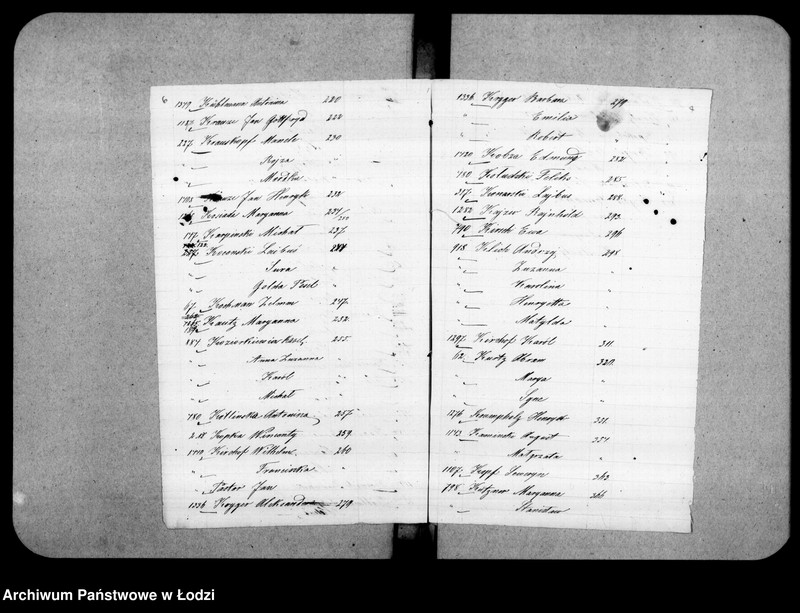 6
1379. Kühlmann Antonina 220
1183 Krauze Jan Gottfryd 222
237. Krauskopf Manele 230
" Rojza "
" Maryla "
1702. Krauze Jan Henryk 232
Kosiada Maryanna 234/
177. Karpiński Michał 237.
287. Koronski Leibuś 244
" Sura "
" Golda Tkul "
67. Kochman Zelman 247.
Kautz Maryanna 252.
887 Kozierkiewicz Karol 255
" Anna Zuzanna "
" Karól "
" Michał "
780 Kotlińska Antonina 257.
258 Kupke Wincenty 259.
1719. Kirchof Wilhelm 260
" Franciszka "
" Pastor Jan "
1336 Krygger Aleksander 279
1336 Krygger Barbara 279
" Emilia
" Robert
1420 Kobza Edmund 282
780 Koludzki Feliks 285
317. Konarski Lajbus 288
1252 Kajzer Rajnhold 293
790 Kirsch Ewa 296
918 Kelich Andrzej 298
" Zuzanna "
" Karolina "
" Henryetta "
" Matylda "
1297. Kirchof Karól 311.
62. Kurtz Abram 320.
" Marya "
" Igne "
1276 Krempholz Henryk 331.
1143. Kaminski August 351
" Małgorzata "
1107. Kopf Seweryn 362
788 Kitzner Maryanna 366
" Stanisław "
Archiwum Państwowe w Łodzi